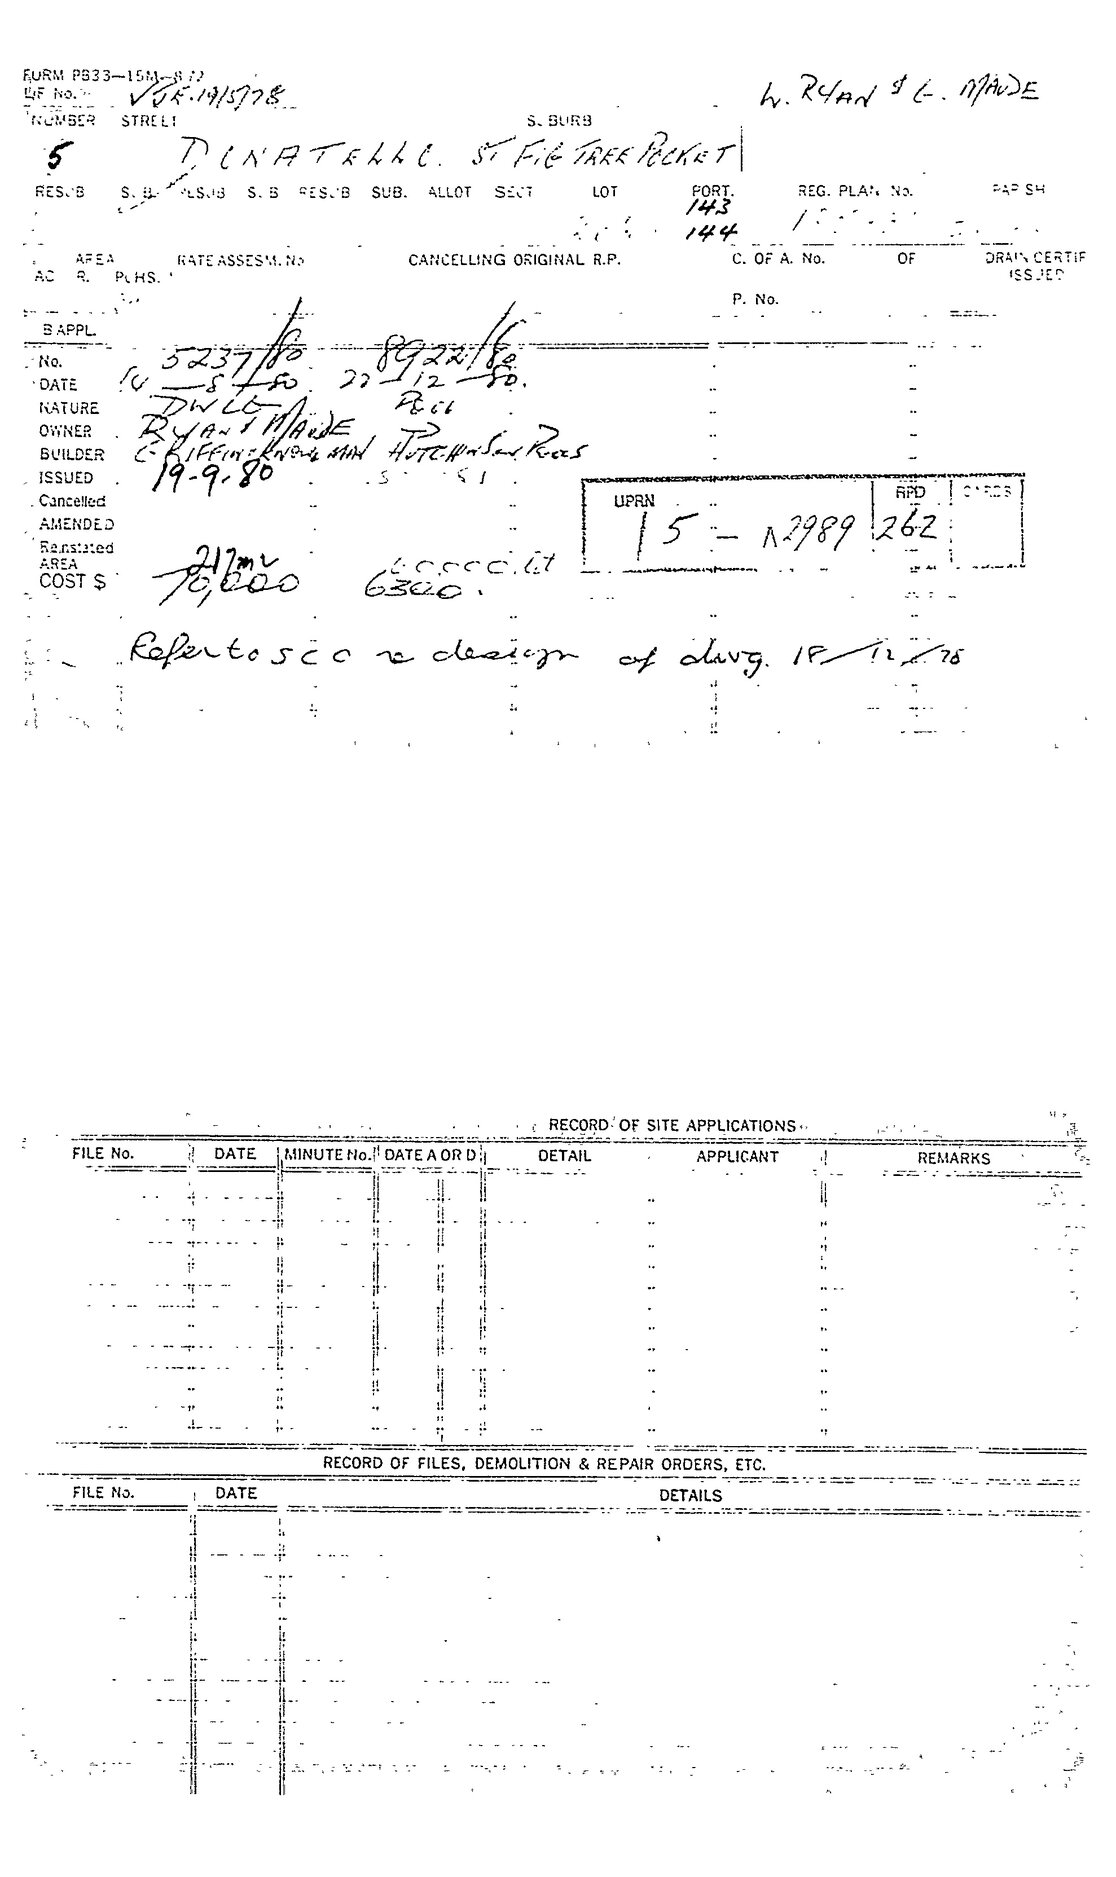 FORM PB33—15M—8/72
REF No. 19/5/78
W. RYAN & G. MAUDE
NUMBER STREET SUBURB
5 DONATELLO ST FIG TREE POCKET
RESUB SUB. RESUB SUB RESUB SUB. ALLOT SECT LOT PORT. REG. PLAN No. PARISH
143
144
AREA RATE ASSESM. No CANCELLING ORIGINAL R.P. C. OF A. No. OF DRAIN CERTIF
AC R. PCHS. ISSUED
P. No.
B APPL.
No. 5237/80 8922/80
DATE —8—80 22—12—80.
NATURE DWLG POOL
OWNER RYAN & MAUDE
BUILDER GRIFFIN & KNOWLMAN HUTCHINSON POOLS
ISSUED 19-9-80
Cancelled
UPRN RPD CARDS
AMENDED
15 - 2989 262
Reinstated
AREA 217m
COST $ 70,000 6300.
Refer to s c o re design of dwg. 18/12/78
RECORD OF SITE APPLICATIONS
FILE No. DATE MINUTE No. DATE A OR D DETAIL APPLICANT REMARKS
RECORD OF FILES, DEMOLITION & REPAIR ORDERS, ETC.
FILE No. DATE DETAILS